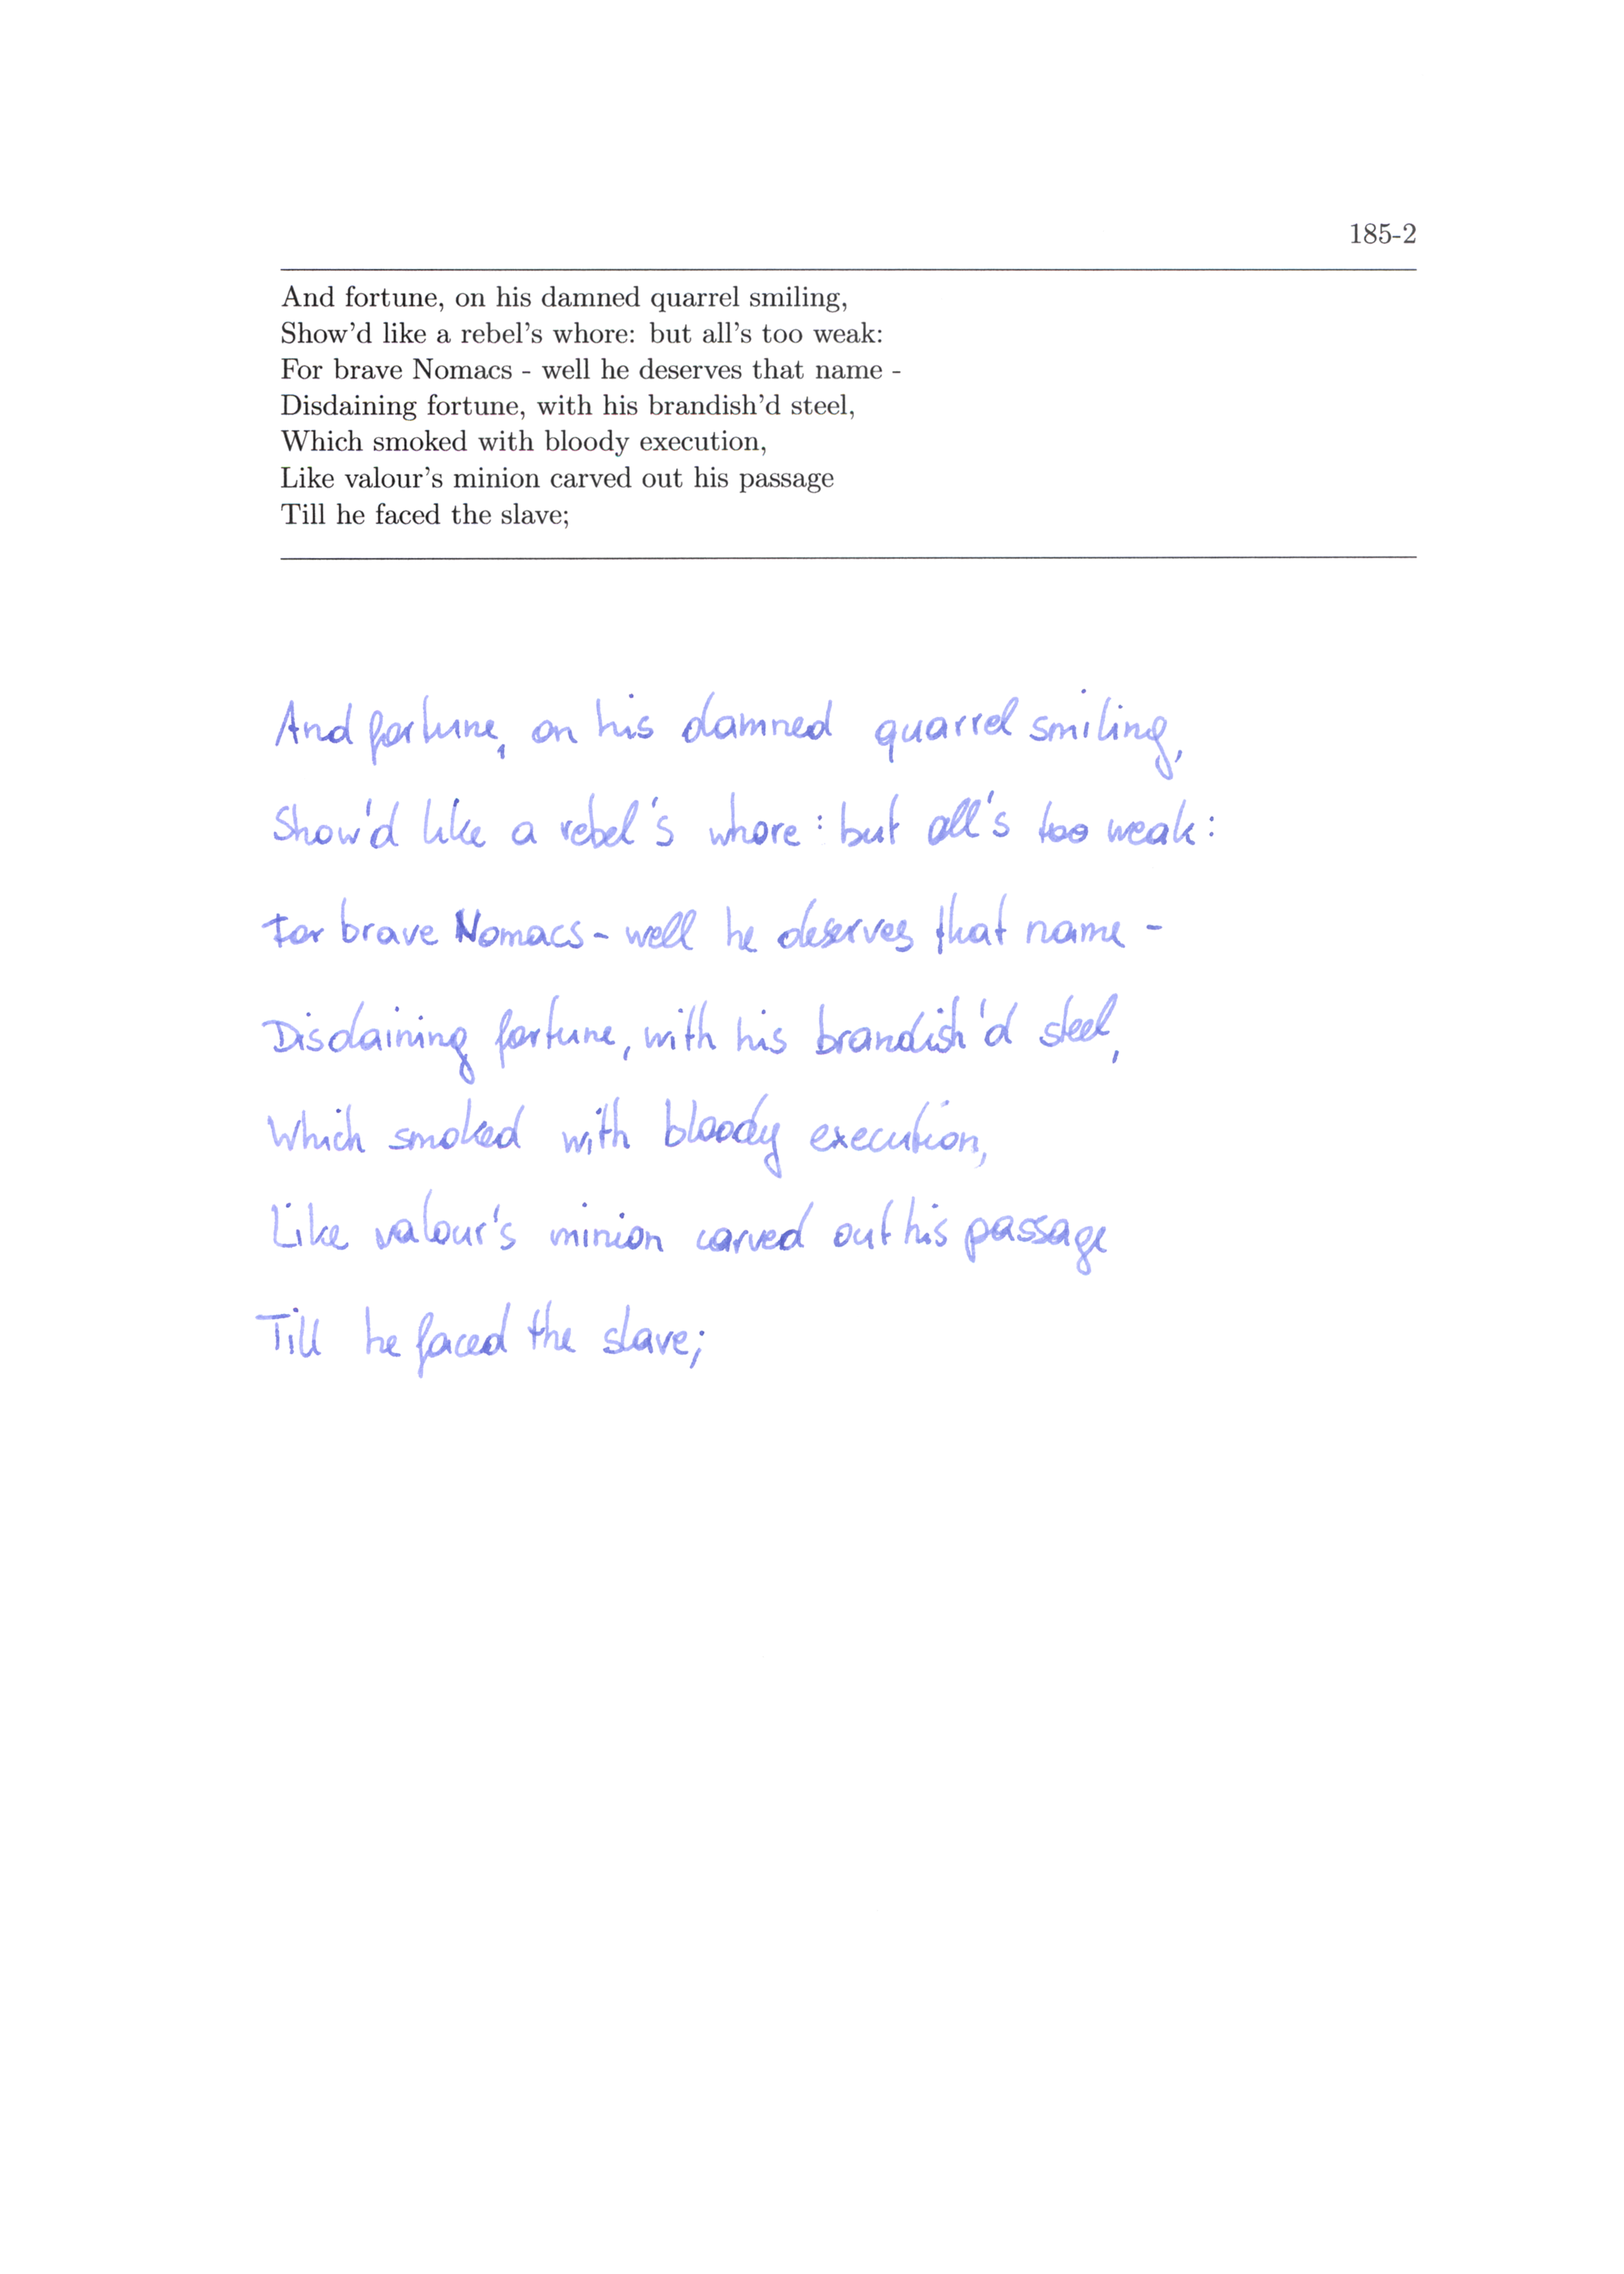 185-2
And fortune, on his damned quarrel smiling,
Show'd like a rebel's whore: but all's too weak:
For brave Nomacs - well he deserves that name -
Disdaining fortune, with his brandish'd steel,
Which smoked with bloody execution,
Like valour's minion carved out his passage
Till he faced the slave;
And fortune, on his damned quarrel smiling,
Show'd like a rebel's whore: but all's too weak:
For brave Nomacs - well he deserves that name -
Disdaining fortune, with his brandish'd steel,
Which smoked with bloody execution,
Like valour's minion carved out his passage
Till he faced the slave;